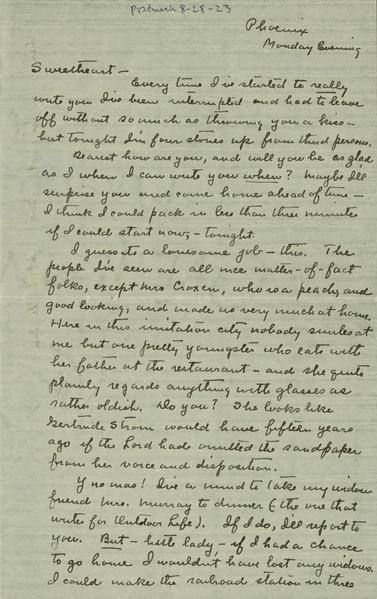 Postmark 8-28-23
Phoenix
Monday Evening
Sweetheart —
Every time I've started to really
write you I've been interrupted and had to leave
off without so much as throwing you a kiss —
but tonight I'm four stories up from third persons.
Dearest how are you, and will you be as glad
as I when I can write you when? Maybe I'll
surprise you and come home ahead of time —
I think I could pack in less than three minutes
if I could start now, — tonight.
I guess its a lonesome job — this. The
people I've seen are all nice matter-of-fact
folks, except Mrs Croxen, who is a peach, and
good looking, and made us very much at home.
Here in this imitation city nobody smiles at
me but one pretty youngster who eats with
her father at the restaurant — and she quite
plainly regards anything with glasses as
rather oldish. Do you? She looks like
Gertrude Strom would have fifteen years
ago if the Lord had omitted the sandpaper
from her voice and disposition.
Y no mas! I've a mind to take my widow
friend Mrs. Murray to dinner (the one that
writes for Outdoor Life). If I do, I'll report to
you. But — little lady, — if I had a chance
to go home I wouldn't have lost any widows.
I could make the railroad station in three